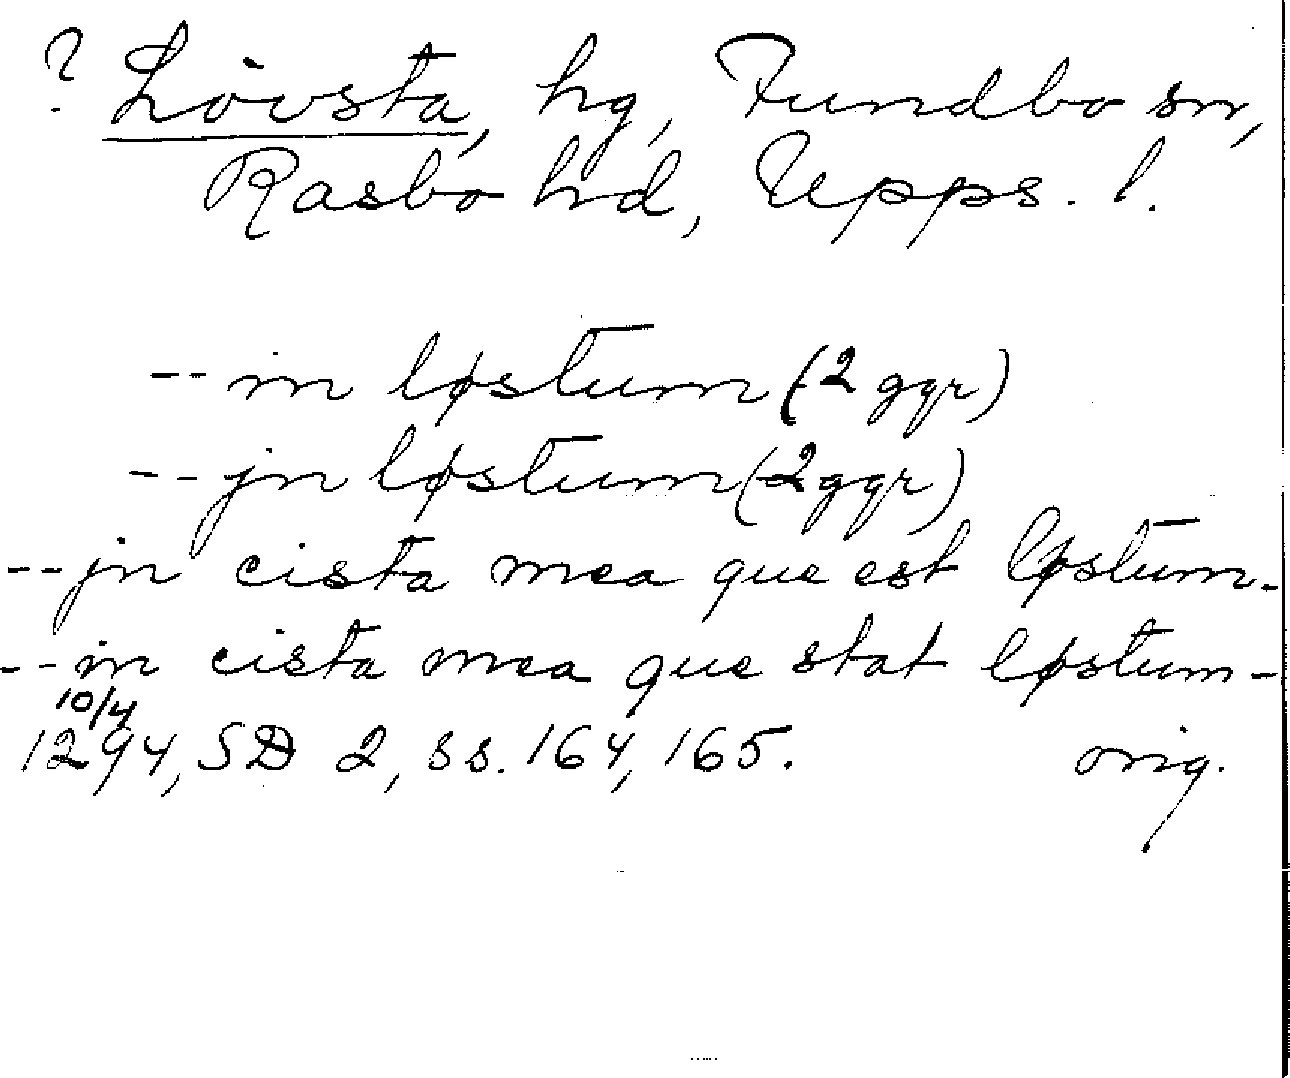 ? Lövsta, hg, Fundbo sn,
Rasbo hd, Upps. l.
-- in løstum (2 ggr)
-- jn løstum (2 ggr)
-- jn cista mea que est løstum -
-- in cista mea que stat løstum -
10/4
1294, SD 2, ss. 164, 165. orig.